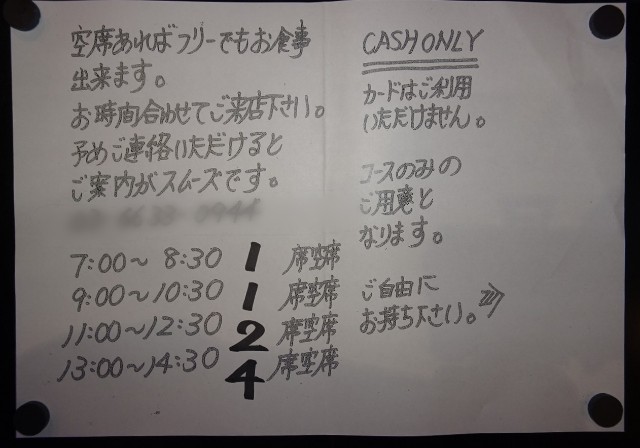 空席あればフリーでもお食事
出来ます。
お時間合わせてご来店下さい。
予めご連絡いただけると
ご案内がスムーズです。
7:00〜 8:30 1 席空席
9:00〜10:30 1 席空席
11:00〜12:30 2 席空席
13:00〜14:30 4 席空席
CASH ONLY
カードはご利用
いただけません。
コースのみの
ご用意と
なります。
ご自由に
お持ち下さい。